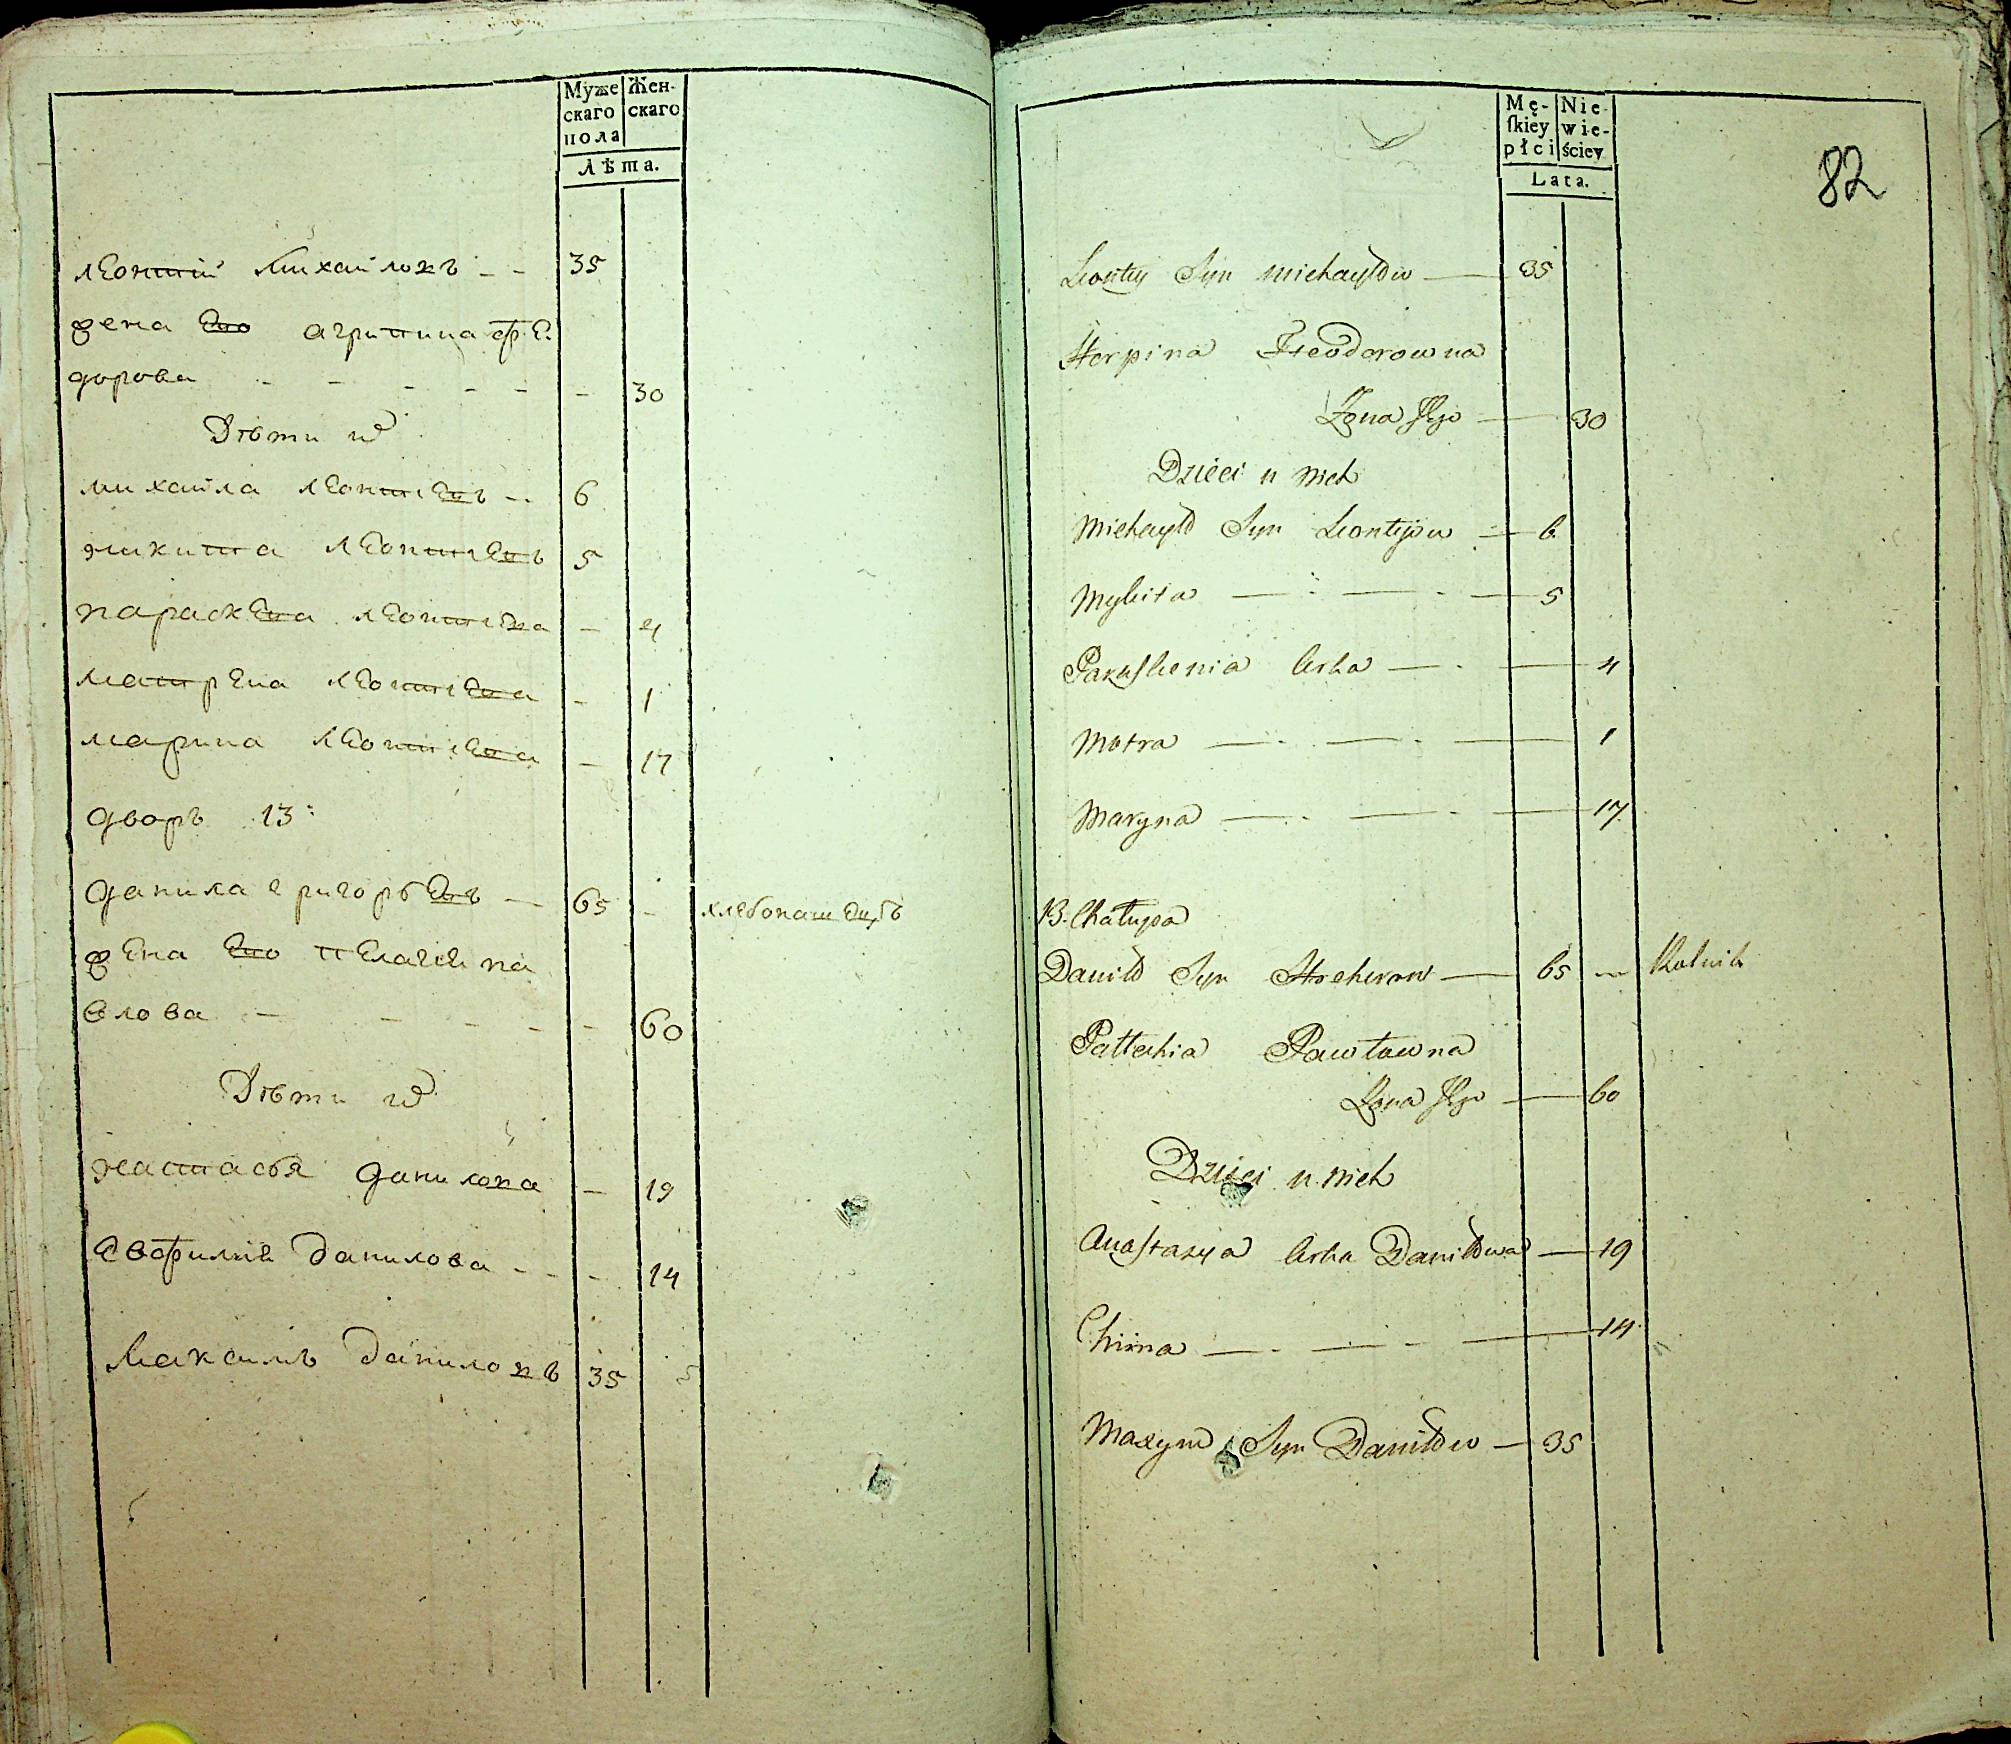 Муже
скаго
пола
Жен-
скаго
Лѣта.
леонтий Михайловъ - - 35
жена Его агрипина фе.
дорова - - - - - - 30
Дѣти их
михайла леонтиевъ - - 6
никита леонтиевъ 5
параскева леонтиева - 4
матрена леонтиева - 1
марина леонтиева - 17
дворъ 13:
данила григорьевъ — 65 - хлебопашецъ
жена Его пелагея па
влова — - - - - 60
Дѣти их
настасья данилова - 19
Евфимия данилова - - - 14
Максимъ даниловъ 35
Mę-
ſkiey
płci
Nie-
wie-
ściey
Lata.
82
Leontiy Syn Michayłow — 35
Horpina Fteodorowna
Żona Jego — 30
Dzieci u nich
Michayło Syn Leontijow — 6
Mykita — - — - — 5
Paraſkewia Crka — - — 4
Motra — - — - — 1
Maryna — - — - — 17
13. Chałupa
Daniło Syn Hrehorow — 65 — Rolnik
Pałłachia Pawłowna
Żona Jego — 60
Dzieci u nich
Anaſtazya Crka Daniłowa — 19
Chima — - — - — 14
Maxym Syn Daniłow — 35